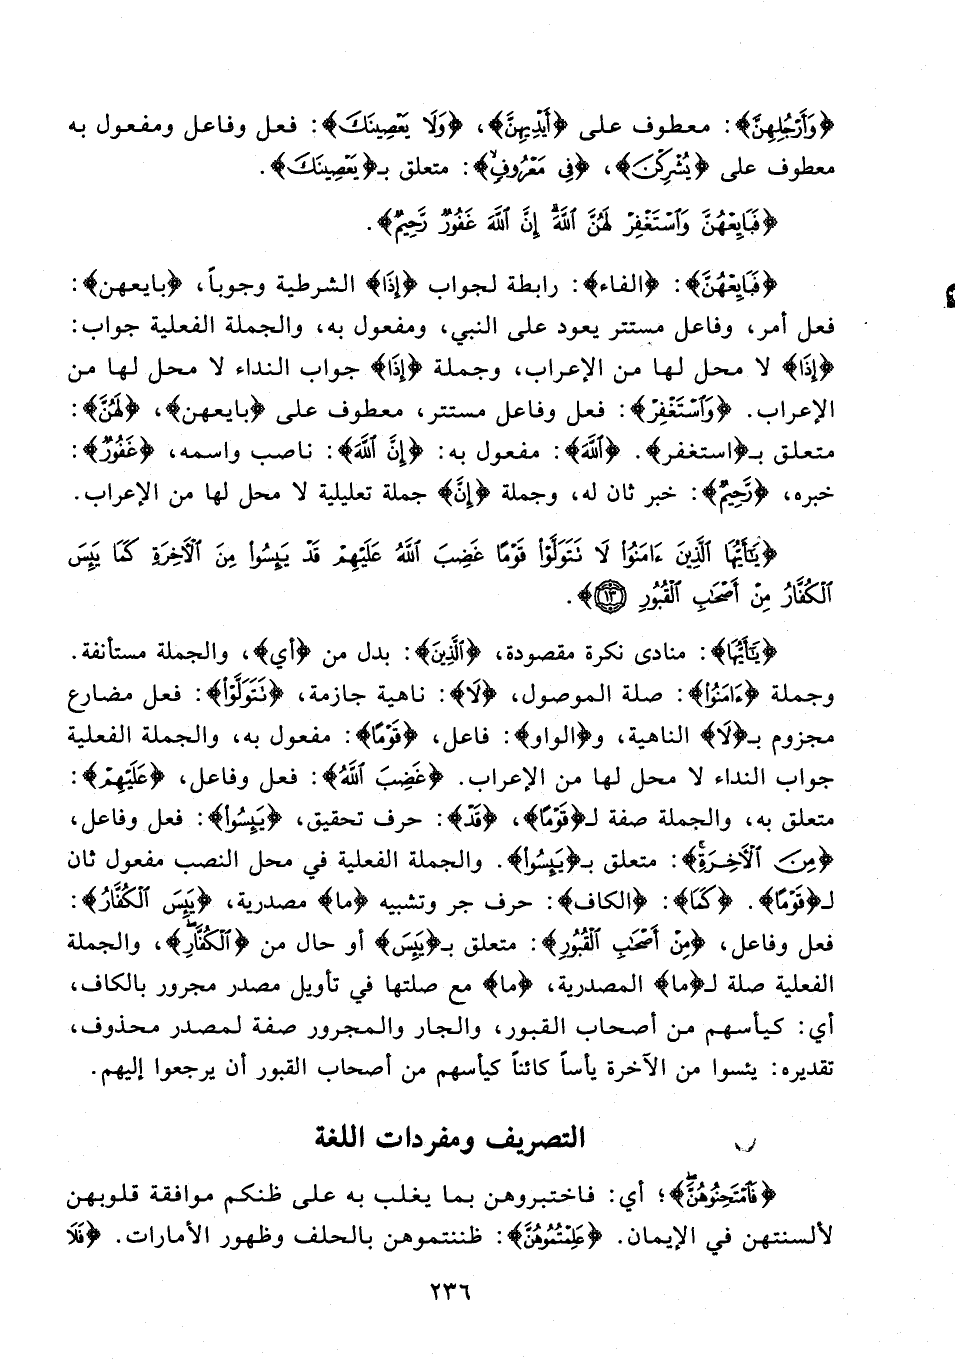 ﴿وَأَرْجُلِهِنَّ﴾: معطوف على ﴿أَيْدِيهِنَّ﴾، ﴿وَلَا يَعْصِينَكَ﴾: فعل وفاعل ومفعول به
معطوف على ﴿يُشْرِكْنَ﴾، ﴿فِي مَعْرُوفٍ﴾: متعلق بـ﴿يَعْصِينَكَ﴾.
﴿فَبَايِعْهُنَّ وَٱسْتَغْفِرْ لَهُنَّ ٱللَّهَ إِنَّ ٱللَّهَ غَفُورٌ رَّحِيمٌ﴾.
﴿فَبَايِعْهُنَّ﴾: ﴿الفاء﴾: رابطة لجواب ﴿إِذَا﴾ الشرطية وجوباً، ﴿بايعهن﴾:
فعل أمر، وفاعل مستتر يعود على النبي، ومفعول به، والجملة الفعلية جواب:
﴿إِذَا﴾ لا محل لها من الإعراب، وجملة ﴿إِذَا﴾ جواب النداء لا محل لها من
الإعراب. ﴿وَٱسْتَغْفِرْ﴾: فعل وفاعل مستتر، معطوف على ﴿بايعهن﴾، ﴿لَهُنَّ﴾:
متعلق بـ﴿استغفر﴾. ﴿ٱللَّهَ﴾: مفعول به: ﴿إِنَّ ٱللَّهَ﴾: ناصب واسمه، ﴿غَفُورٌ﴾:
خبره، ﴿رَّحِيمٌ﴾: خبر ثان له، وجملة ﴿إِنَّ﴾ جملة تعليلية لا محل لها من الإعراب.
﴿يَٰٓأَيُّهَا ٱلَّذِينَ ءَامَنُوا۟ لَا تَتَوَلَّوْا۟ قَوْمًا غَضِبَ ٱللَّهُ عَلَيْهِمْ قَدْ يَئِسُوا۟ مِنَ ٱلْءَاخِرَةِ كَمَا يَئِسَ
ٱلْكُفَّارُ مِنْ أَصْحَٰبِ ٱلْقُبُورِ ١٣﴾.
﴿يَٰٓأَيُّهَا﴾: منادى نكرة مقصودة، ﴿ٱلَّذِينَ﴾: بدل من ﴿أي﴾، والجملة مستأنفة.
وجملة ﴿ءَامَنُوا۟﴾: صلة الموصول، ﴿لَا﴾: ناهية جازمة، ﴿تَتَوَلَّوْا۟﴾: فعل مضارع
مجزوم بـ﴿لَا﴾ الناهية، و﴿الواو﴾: فاعل، ﴿قَوْمًا﴾: مفعول به، والجملة الفعلية
جواب النداء لا محل لها من الإعراب. ﴿غَضِبَ ٱللَّهُ﴾: فعل وفاعل، ﴿عَلَيْهِمْ﴾:
متعلق به، والجملة صفة لـ﴿قَوْمًا﴾، ﴿قَدْ﴾: حرف تحقيق، ﴿يَئِسُوا۟﴾: فعل وفاعل،
﴿مِنَ ٱلْءَاخِرَةِ﴾: متعلق بـ﴿يَئِسُوا۟﴾. والجملة الفعلية في محل النصب مفعول ثان
لـ﴿قَوْمًا﴾. ﴿كَمَا﴾: ﴿الكاف﴾: حرف جر وتشبيه ﴿ما﴾ مصدرية، ﴿يَئِسَ ٱلْكُفَّارُ﴾:
فعل وفاعل، ﴿مِنْ أَصْحَٰبِ ٱلْقُبُورِ﴾: متعلق بـ﴿يَئِسَ﴾ أو حال من ﴿ٱلْكُفَّارِ﴾، والجملة
الفعلية صلة لـ﴿ما﴾ المصدرية، ﴿ما﴾ مع صلتها في تأويل مصدر مجرور بالكاف،
أي: كيأسهم من أصحاب القبور، والجار والمجرور صفة لمصدر محذوف،
تقديره: يئسوا من الآخرة يأساً كائناً كيأسهم من أصحاب القبور أن يرجعوا إليهم.
التصريف ومفردات اللغة
﴿فَٱمْتَحِنُوهُنَّ﴾؛ أي: فاختبروهن بما يغلب به على ظنكم موافقة قلوبهن
لألسنتهن في الإيمان. ﴿عَلِمْتُمُوهُنَّ﴾: ظننتموهن بالحلف وظهور الأمارات. ﴿فَلَا
٢٣٦